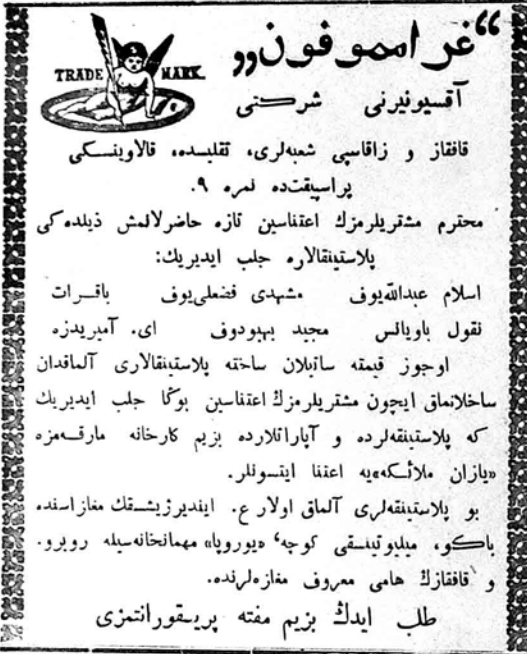 “غراممو فون„
TRADE MARK.
آقسیونیرنی شرکتی
قافقاز و زاقاسپی شعبه‌لری، تفلیسده، قالاوینسکی
پراسپیقت‌ده نمره ۹.
محترم مشتریلرمزڭ اعتناسین تازه حاضرلانمش ذیلده‌کی
پلاستینقالاره جلب ایدیریك:
اسلام عبدالله‌یوف مشهدی فضعلی‌یوف باقرات
نقول باویانس مجید بهبودوف ای. آمیریدزه
اوجوز قیمته ساتیلان ساخته پلاستینقالاری آلماقدان
ساخلانماق ایچون مشتریلرمزڭ اعتناسین بوڭا جلب ایدیریك
که پلاستینقه‌لرده و آپاراتلارده بزیم کارخانه مارقه‌مزه
«یازان ملائکه»یه اعتنا ایتسونلر.
بو پلاستینقه‌لری آلماق اولار ع. ایندیرژیشقك مغازاسنده
باکو، میلیوتینسقی کوچه، «یوروپا» مهمانخانه‌سیله روبرو.
و قافقازڭ هامی معروف مغازه‌لرنده.
طلب ایدڭ بزیم مفته پریسقورانتمزی